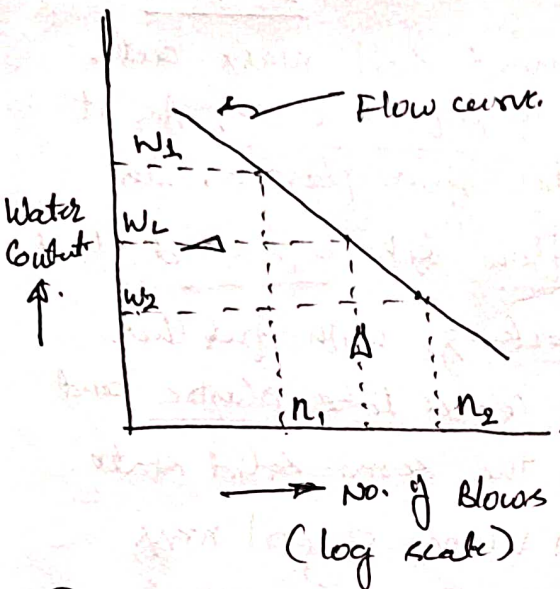 Flow curve.
W1
Water
Content
WL
W2
n1
n2
No. of Blows
(log scale)